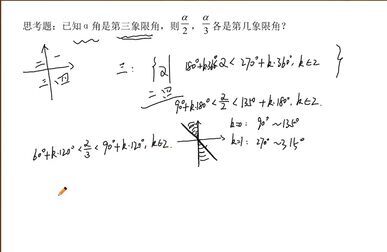 思考题：已知α角是第三象限角，则α/2，α/3各是第几象限角？
二 一
三 四
三： {α| 180°+k·360°<α<270°+k·360°, k∈Z }
二 四
90°+k·180°<α/2<135°+k·180°, k∈Z.
k=0: 90°~135°
60°+k·120°<α/3<90°+k·120°, k∈Z.
k=1: 270°~315°